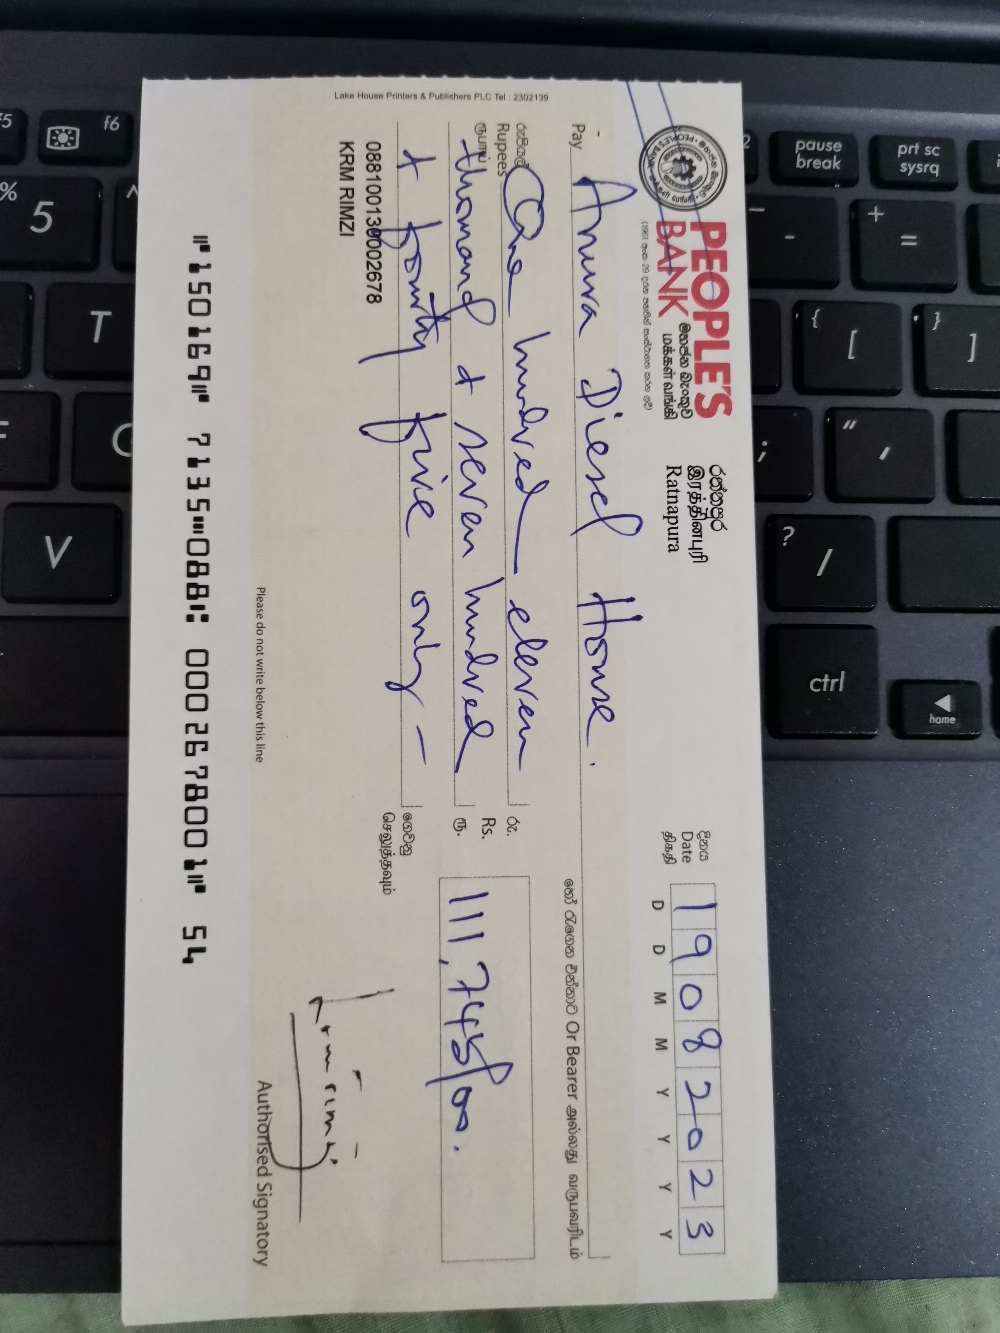 Lake House Printers & Publishers PLC Tel : 2302139
PEOPLE'S
BANK
මහජන බැංකුව
மக்கள் வங்கி
රත්නපුර
இரத்தினபுரி
Ratnapura
දිනය
Date
திகதி
19082023
D D M M Y Y Y Y
Pay Anura Diesel House.
හෝ රැගෙන එන්නාට Or Bearer அல்லது வருபவரிடம்
රුපියල්
Rupees
ரூபாய்
One hundred eleven
thousand & seven hundred
& fourty five only -
රු.
Rs.
ரூ.
111,745/00.
ගෙවනු
செலுத்தவும்
088100130002678
KRM RIMZI
Authorised Signatory
Please do not write below this line
⑈150169⑈ 7135⑉088⑆ 0002678001⑈ 54
f5
f6
%
5
^
T
F
G
V
pause
break
prt sc
sysrq
-
+
=
{
[
}
]
;
"
,
?
/
ctrl
home